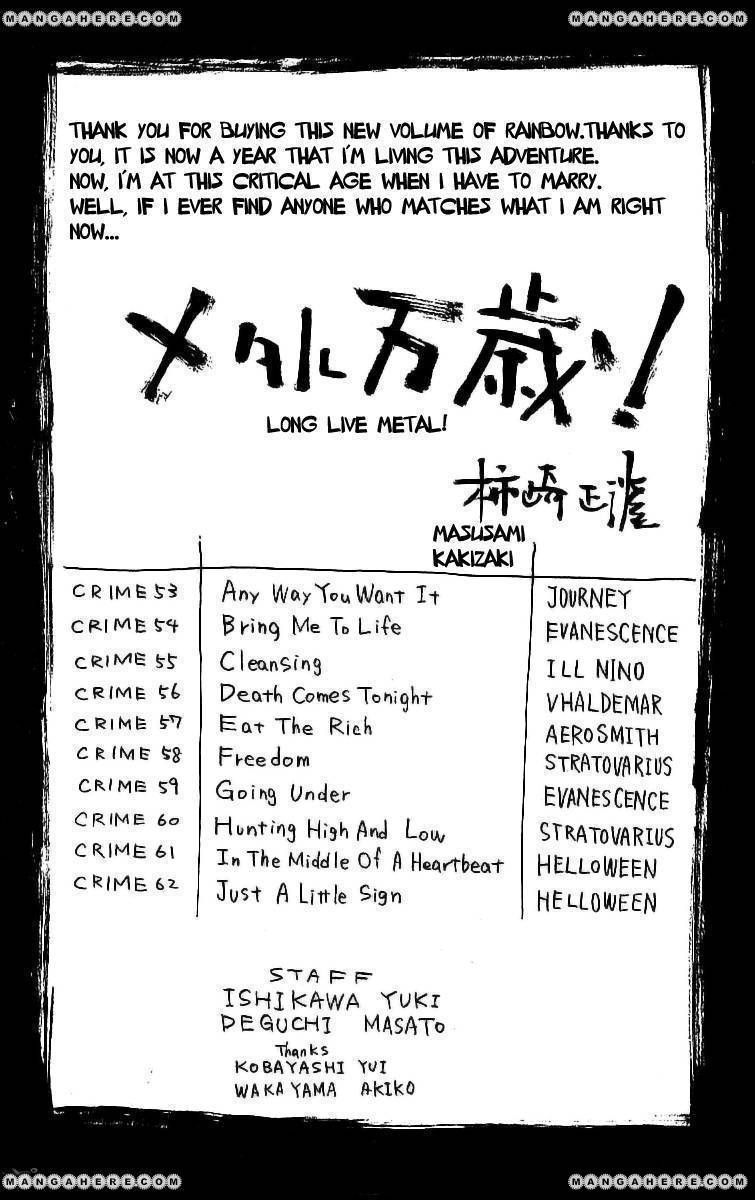 MANGAHERE.COM MANGAHERE.COM
THANK YOU FOR BUYING THIS NEW VOLUME OF RAINBOW.THANKS TO
YOU, IT IS NOW A YEAR THAT I'M LIVING THIS ADVENTURE.
NOW, I'M AT THIS CRITICAL AGE WHEN I HAVE TO MARRY.
WELL, IF I EVER FIND ANYONE WHO MATCHES WHAT I AM RIGHT
NOW...
メタル万歳ッ!
LONG LIVE METAL!
柿崎正澄
MASUSAMI
KAKIZAKI
CRIME 53 Any Way You Want It JOURNEY
CRIME 54 Bring Me To Life EVANESCENCE
CRIME 55 Cleansing ILL NINO
CRIME 56 Death Comes Tonight VHALDEMAR
CRIME 57 Eat The Rich AEROSMITH
CRIME 58 Freedom STRATOVARIUS
CRIME 59 Going Under EVANESCENCE
CRIME 60 Hunting High And Low STRATOVARIUS
CRIME 61 In The Middle Of A Heartbeat HELLOWEEN
CRIME 62 Just A Little Sign HELLOWEEN
STAFF
ISHIKAWA YUKI
DEGUCHI MASATO
Thanks
KOBAYASHI YUI
WAKAYAMA AKIKO
MANGAHERE.COM MANGAHERE.COM